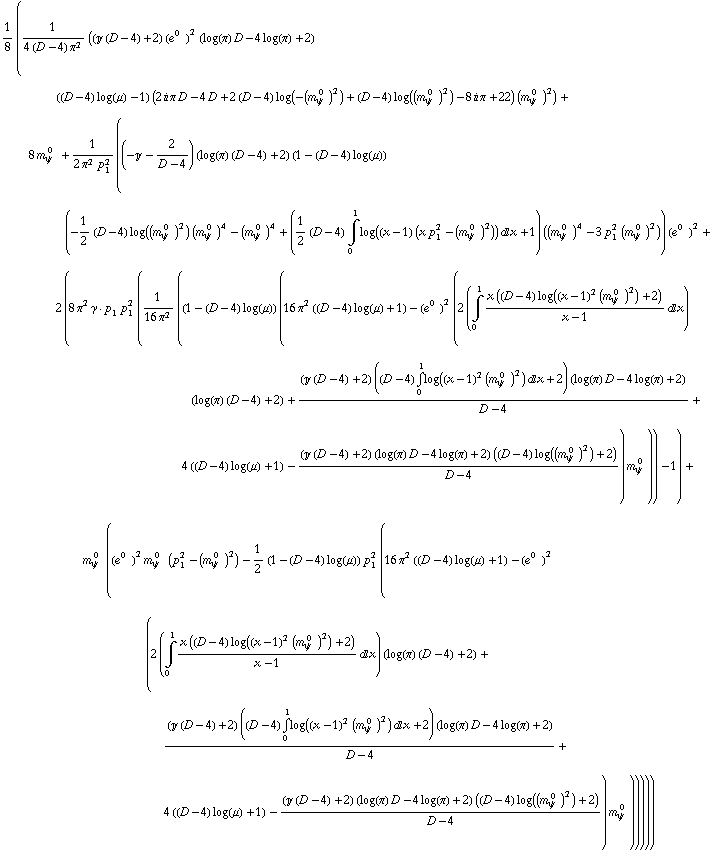 1/8 ( 1/(4 (D−4) π²) ((𝛾 (D−4)+2) (e⁰)² (log(π) D−4 log(π)+2)
((D−4) log(μ)−1) (2 ⅈ π D−4 D+2 (D−4) log(−(m_ψ⁰)²)+(D−4) log((m_ψ⁰)²)−8 ⅈ π+22) (m_ψ⁰)²) +
8 m_ψ⁰ + 1/(2 π² p₁²) ( (−𝛾− 2/(D−4)) (log(π) (D−4)+2) (1−(D−4) log(μ))
(−1/2 (D−4) log((m_ψ⁰)²) (m_ψ⁰)⁴−(m_ψ⁰)⁴+(1/2 (D−4) ∫₀¹ log((x−1) (x p₁²−(m_ψ⁰)²)) ⅆx+1) ((m_ψ⁰)⁴−3 p₁² (m_ψ⁰)²)) (e⁰)² +
2 ( 8 π² γ·p₁ p₁² ( 1/(16 π²) ( (1−(D−4) log(μ)) ( 16 π² ((D−4) log(μ)+1)−(e⁰)² ( 2 ( ∫₀¹ x ((D−4) log((x−1)² (m_ψ⁰)²)+2)/(x−1) ⅆx )
(log(π) (D−4)+2) + (𝛾 (D−4)+2) ((D−4) ∫₀¹ log((x−1)² (m_ψ⁰)²) ⅆx+2) (log(π) D−4 log(π)+2)/(D−4) +
4 ((D−4) log(μ)+1)− (𝛾 (D−4)+2) (log(π) D−4 log(π)+2) ((D−4) log((m_ψ⁰)²)+2)/(D−4) ) m_ψ⁰ )) −1 ) +
m_ψ⁰ ( (e⁰)² m_ψ⁰ (p₁²−(m_ψ⁰)²)− 1/2 (1−(D−4) log(μ)) p₁² ( 16 π² ((D−4) log(μ)+1)−(e⁰)²
( 2 ( ∫₀¹ x ((D−4) log((x−1)² (m_ψ⁰)²)+2)/(x−1) ⅆx ) (log(π) (D−4)+2) +
(𝛾 (D−4)+2) ((D−4) ∫₀¹ log((x−1)² (m_ψ⁰)²) ⅆx+2) (log(π) D−4 log(π)+2)/(D−4) +
4 ((D−4) log(μ)+1)− (𝛾 (D−4)+2) (log(π) D−4 log(π)+2) ((D−4) log((m_ψ⁰)²)+2)/(D−4) ) m_ψ⁰ )))))